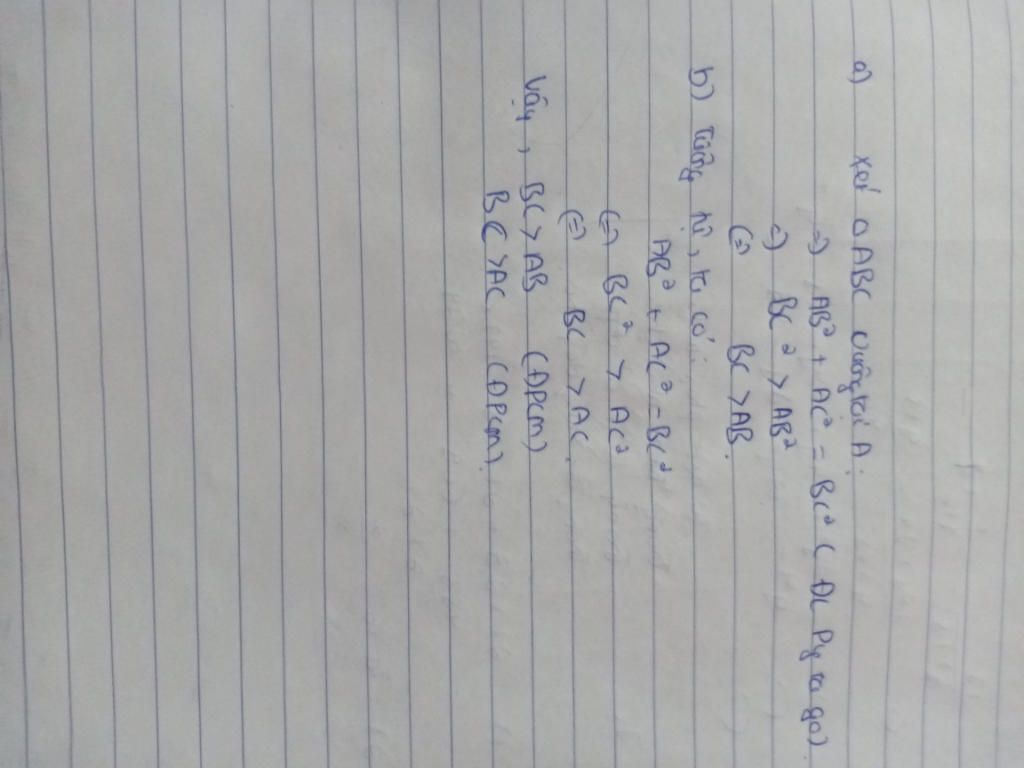 a) Xét △ABC vuông tại A.
=) AB² + AC² = BC² ( ĐL Pytago)
=) BC² > AB²
(=) BC > AB.
b) Tương tự, ta có :
AB² + AC² = BC²
(=) BC² > AC²
(=) BC > AC.
Vậy, BC > AB (ĐPCM)
BC > AC (ĐPCM).